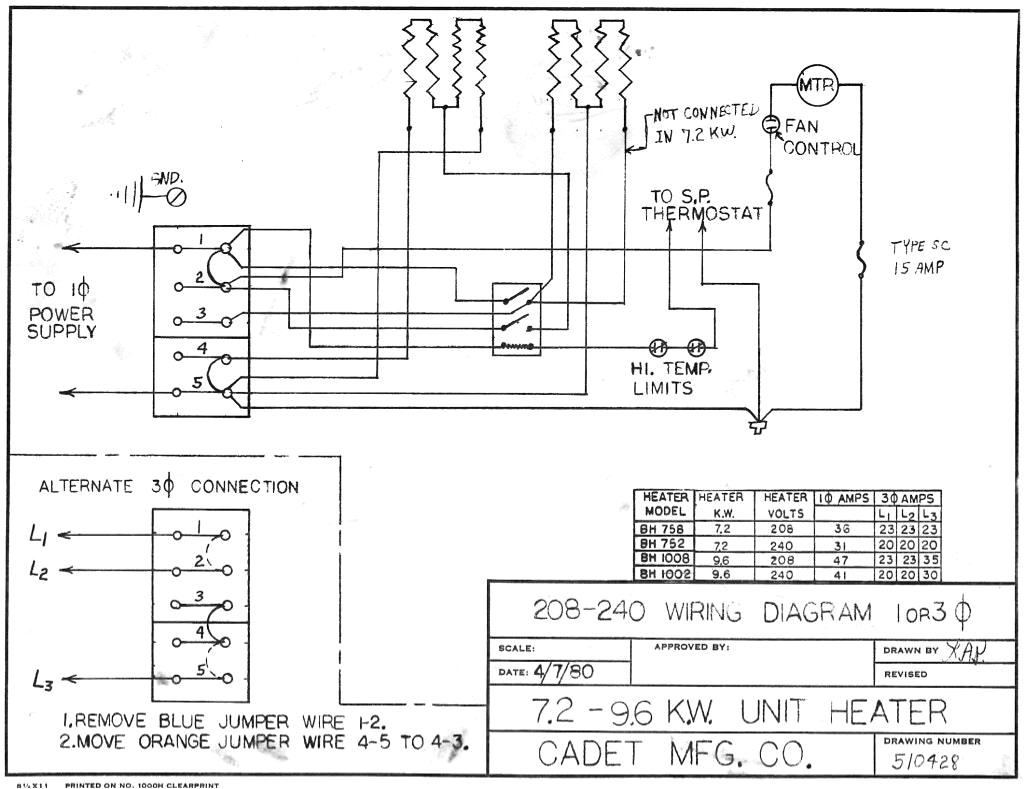 MTR
NOT CONNECTED
IN 7.2 KW.
FAN
CONTROL
GND.
TO S.P.
THERMOSTAT
TYPE SC
15 AMP
1
2
3
4
5
TO 1ϕ
POWER
SUPPLY
HI. TEMP.
LIMITS
ALTERNATE 3ϕ CONNECTION
L1
L2
L3
1
2
3
4
5
1.REMOVE BLUE JUMPER WIRE 1-2.
2.MOVE ORANGE JUMPER WIRE 4-5 TO 4-3.
HEATER MODEL HEATER K.W. HEATER VOLTS 1ϕ AMPS 3ϕ AMPS
L1 L2 L3
BH 758 7.2 208 36 23 23 23
BH 752 7.2 240 31 20 20 20
BH 1008 9.6 208 47 23 23 35
BH 1002 9.6 240 41 20 20 30
208-240 WIRING DIAGRAM 1 OR 3 ϕ
SCALE:
APPROVED BY:
DRAWN BY
DATE: 4/7/80
REVISED
7.2 - 9.6 K.W. UNIT HEATER
CADET MFG. CO.
DRAWING NUMBER
510428
8½X11 PRINTED ON NO. 1000H CLEARPRINT